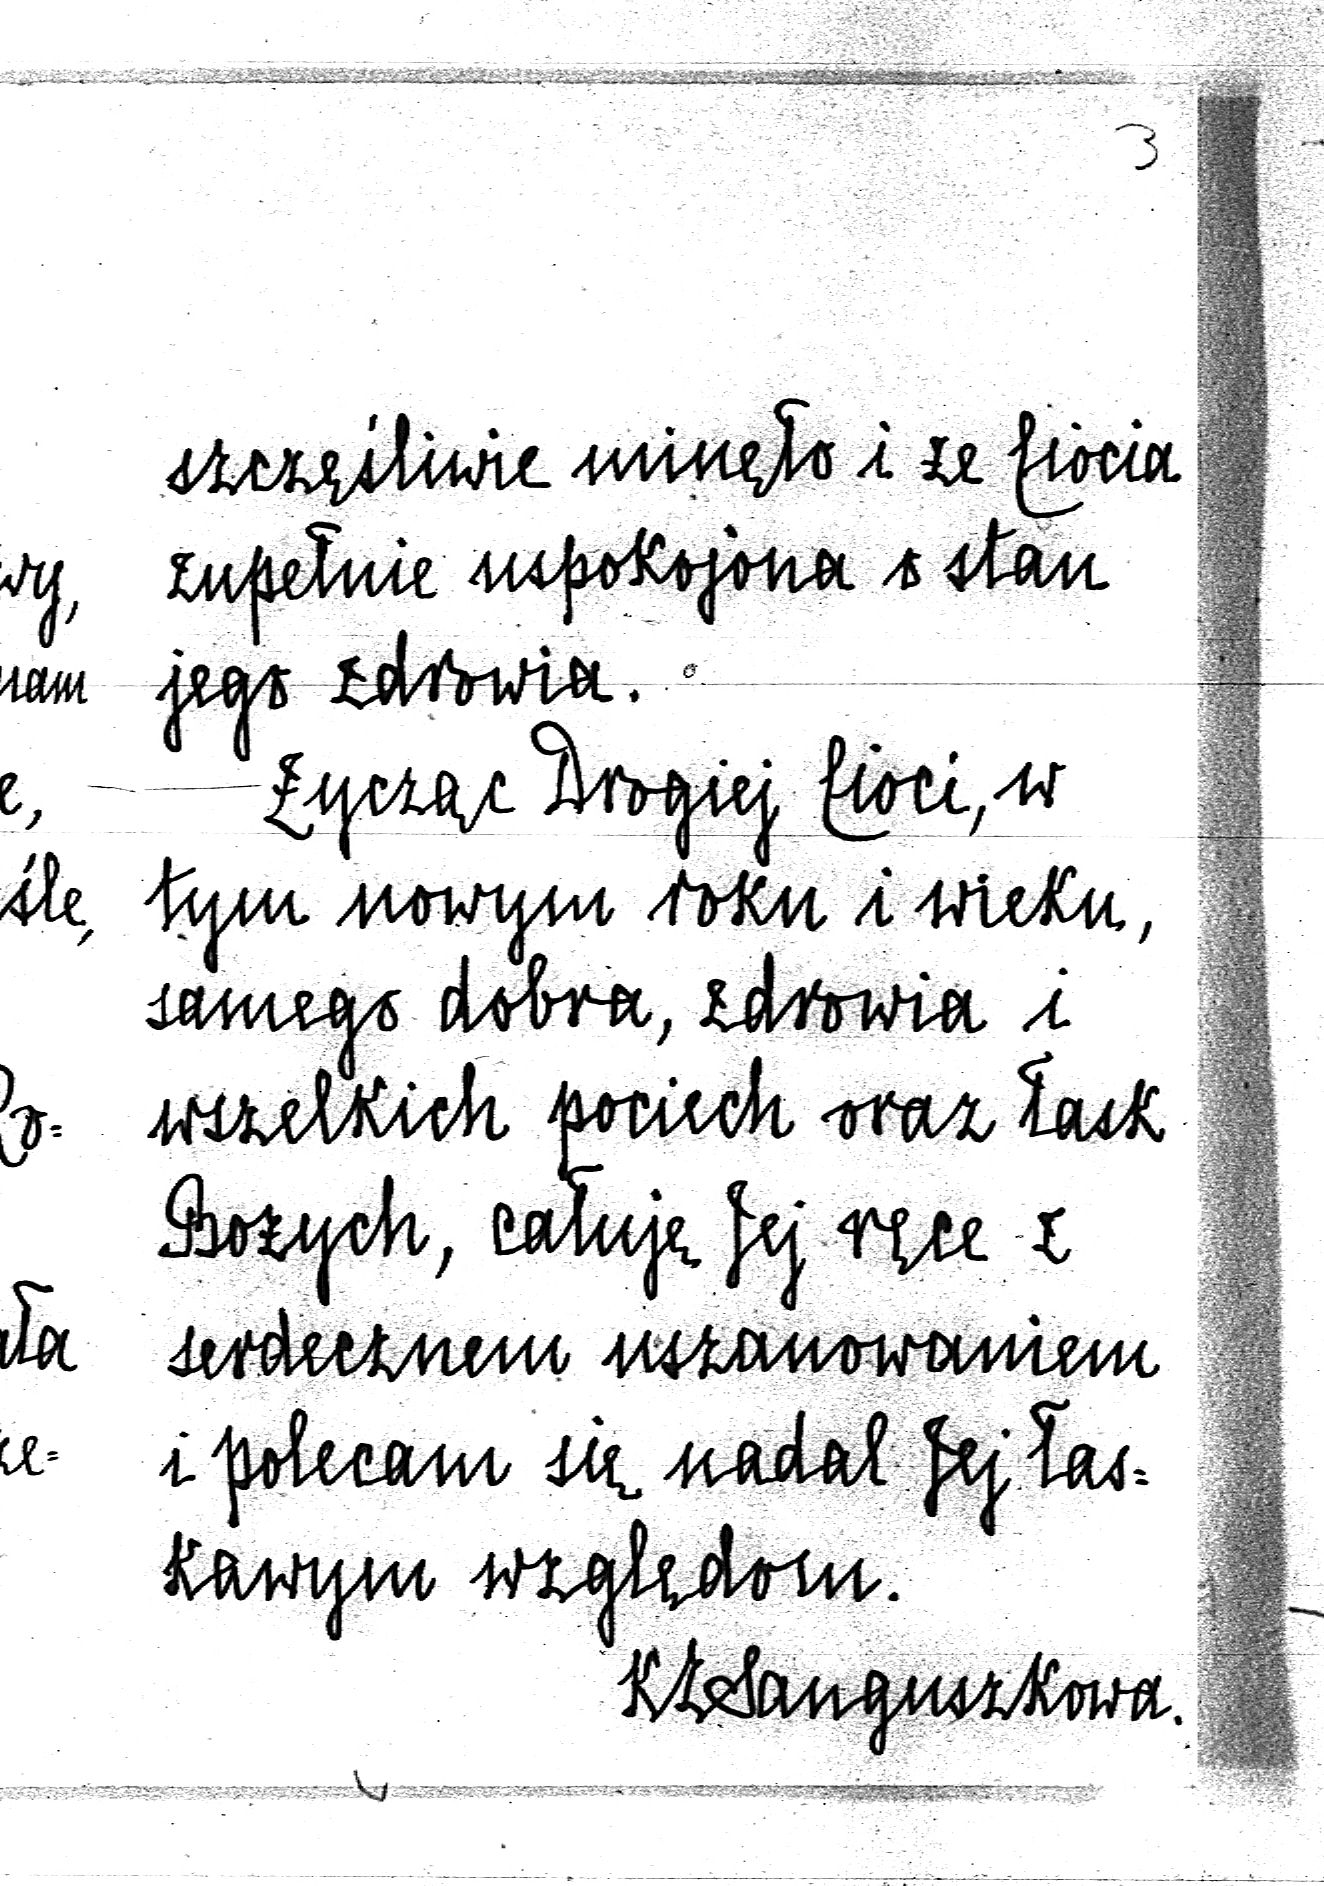 3
szczęśliwie minęło i że Ciocia
zupełnie uspokojona o stan
jego zdrowia.
Życząc Drogiej Cioci, w
tym nowym roku i wieku,
samego dobra, zdrowia i
wszelkich pociech oraz łask
Bożych, całuję Jej ręce z
serdecznem uszanowaniem
i polecam się nadal Jej łas=
kawym względom.
KZSanguszkowa.
wy,
nam
e,
śle,
Ro=
ała
że=